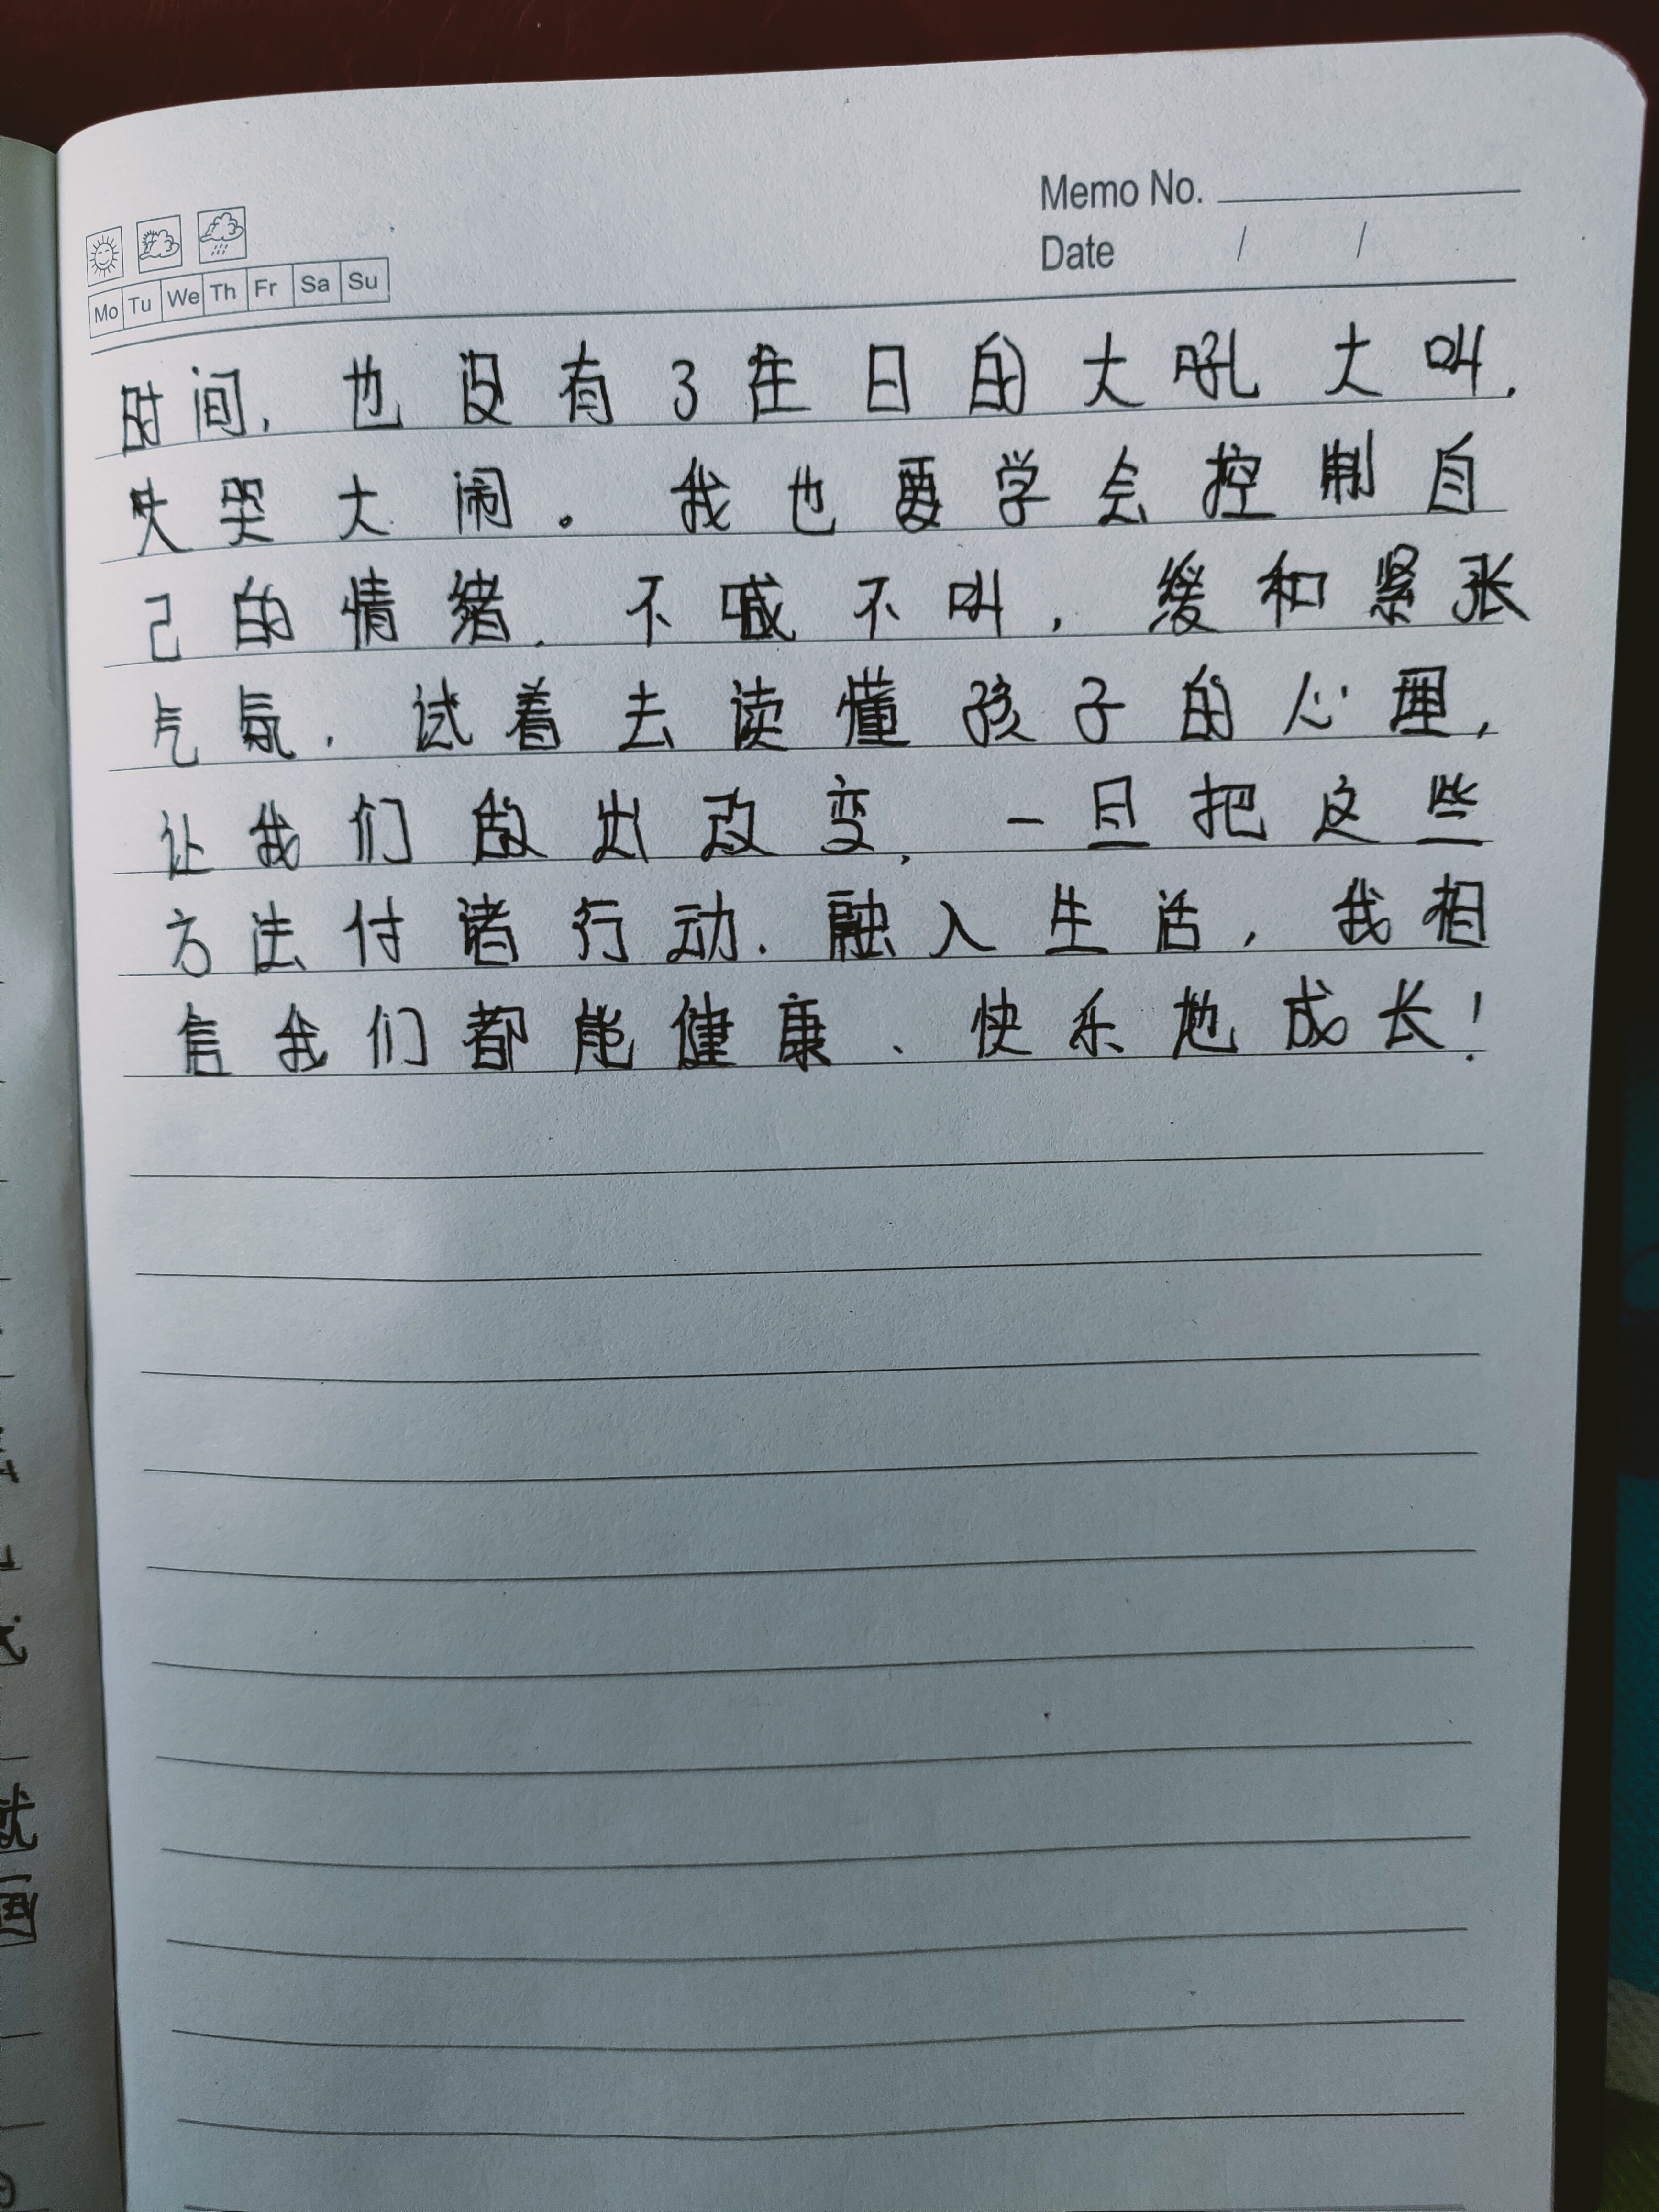 Memo No.
Date / /
Mo Tu We Th Fr Sa Su
时间，也没有了往日的大吼大叫，
大哭大闹。我也要学会控制自
己的情绪，不喊不叫，缓和紧张
气氛，试着去读懂孩子的心理，
让我们做出改变，一旦把这些
方法付诸行动，融入生活，我相
信我们都能健康、快乐地成长！
就
画